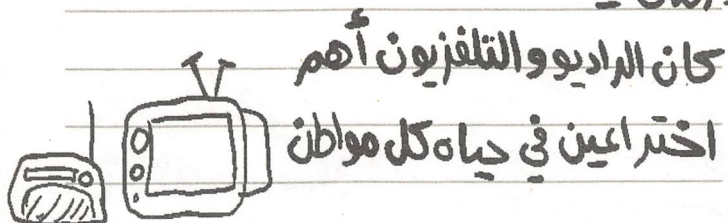 كان الراديو والتلفزيون أهم
اختراعين في حياه كل مواطن